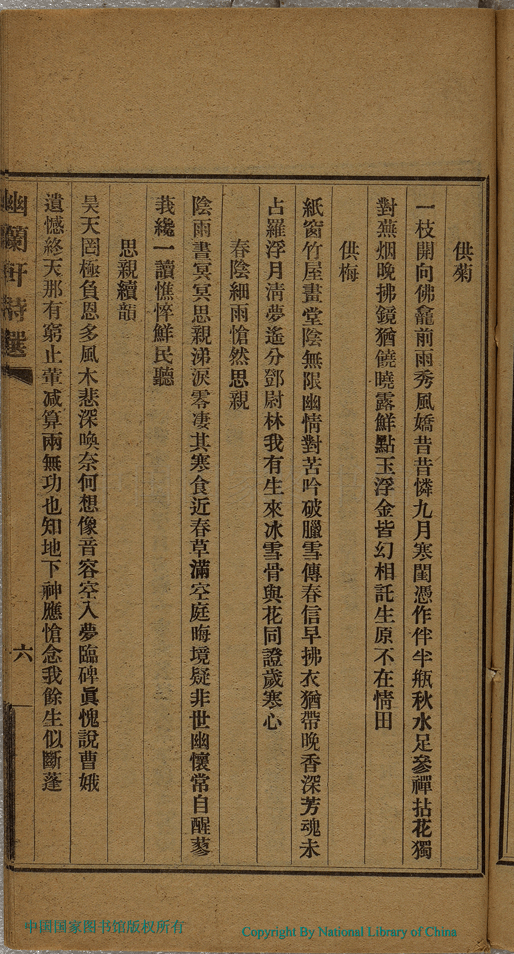 供菊
一枝開向佛龕前雨秀風嬌昔昔憐九月寒閨憑作伴半瓶秋水足參禪拈花獨
對蕪烟晚拂鏡猶饒曉露鮮點玉浮金皆幻相託生原不在情田
供梅
紙窗竹屋畫堂陰無限幽情對苦吟破臘雪傳春信早拂衣猶帶晚香深芳魂未
占羅浮月淸夢遙分鄧尉林我有生來冰雪骨與花同證歲寒心
春陰細雨愴然思親
陰雨晝冥冥思親涕淚零凄其寒食近春草滿空庭晦境疑非世幽懷常自醒蓼
莪纔一讀憔悴鮮民聽
思親續韻
昊天罔極負恩多風木悲深喚奈何想像音容空入夢臨碑眞愧說曹娥
遺憾終天那有窮止葷减算兩無功也知地下神應愴念我餘生似斷蓬
幽蘭軒詩選
六
中国国家图书馆版权所有
Copyright By National Library of China